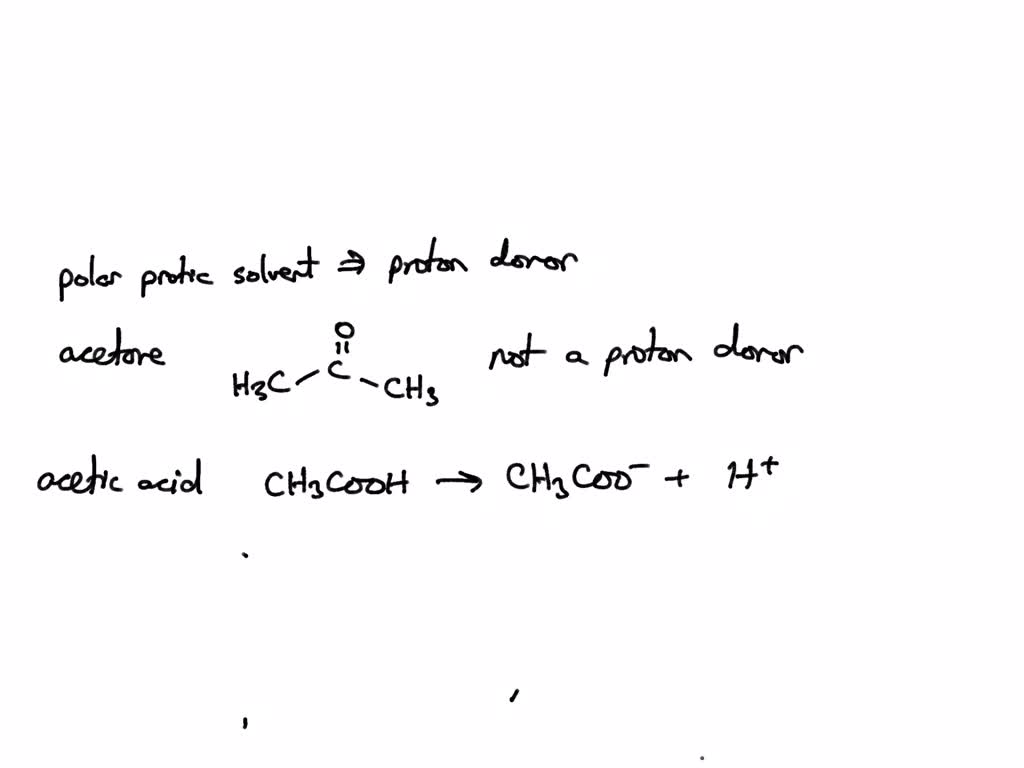 polar protic solvent ⇒ proton donor
acetone H₃C–C(=O)–CH₃ not a proton donor
acetic acid CH₃COOH → CH₃COO⁻ + H⁺